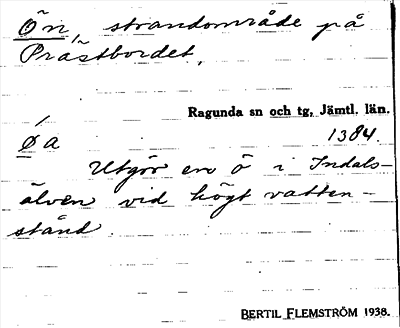 Ön, strandområde på
Prästbordet,
Ragunda sn och tg, Jämtl. län.
Øa 1384.
Utgör en ö i Indals-
älven vid högt vatten-
stånd
BERTIL FLEMSTRÖM 1938.